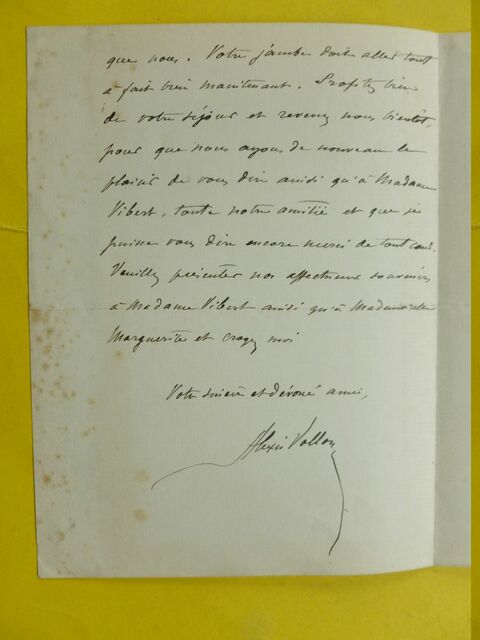 que nous. Votre jambe doit aller tout
à fait bien maintenant. Profitez bien
de votre séjour et revenez nous bientôt,
pour que nous ayons de nouveau le
plaisir de vous dire ainsi qu'à Madame
Vibert, toute notre amitié et que je
puisse vous dire encore merci de tout cœur.
Veuillez présenter nos affectueux souvenirs
à Madame Vibert ainsi qu'à Mademoiselle
Marguerite et croyez moi
Votre sincère et dévoué ami,
Alexis Vollon